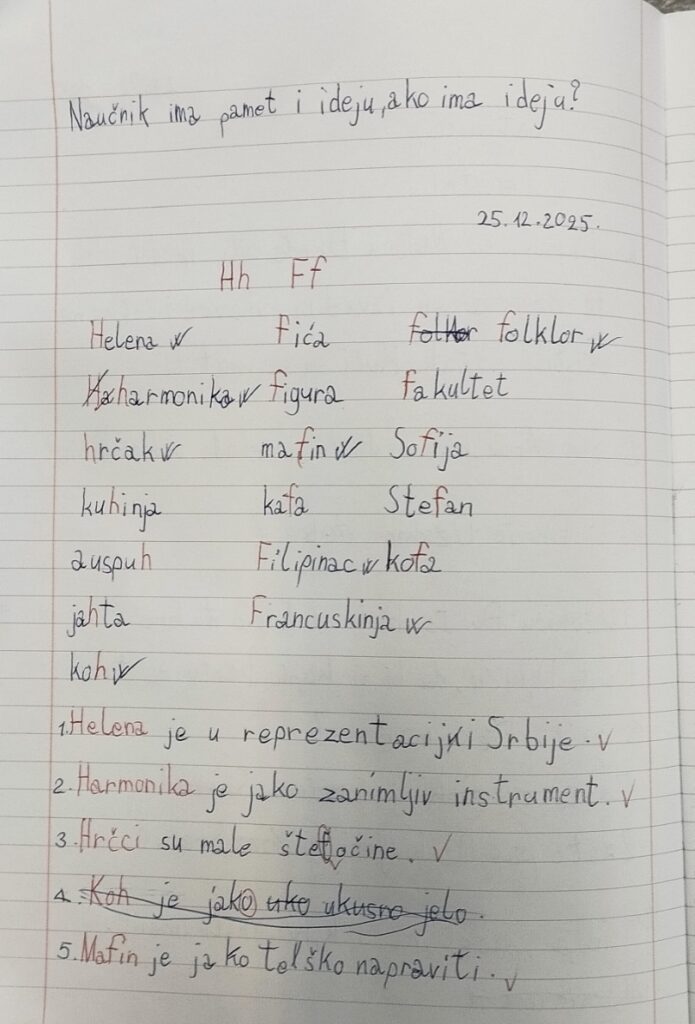 Naučnik ima pamet i ideju, ako ima ideju?
25.12.2025.
Hh Ff
Helena Fića folklor
harmonika figura fakultet
hrčak mafin Sofija
kuhinja kafa Stefan
auspuh Filipinac kofa
jahta Francuskinja
koh
1. Helena je u reprezentaciji Srbije.
2. Harmonika je jako zanimljiv instrument.
3. Hrčci su male štetočine.
4. Koh je jako uko ukusno jelo.
5. Mafin je jako teško napraviti.